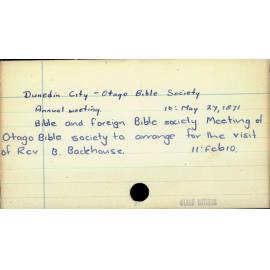 Dunedin City - Otago Bible Society
Annual meeting. 10: May 27, 1871
Bible and foreign Bible society. Meeting of
Otago Bible society to arrange for the visit
of Rev B. Backhouse. 11: Feb 10.